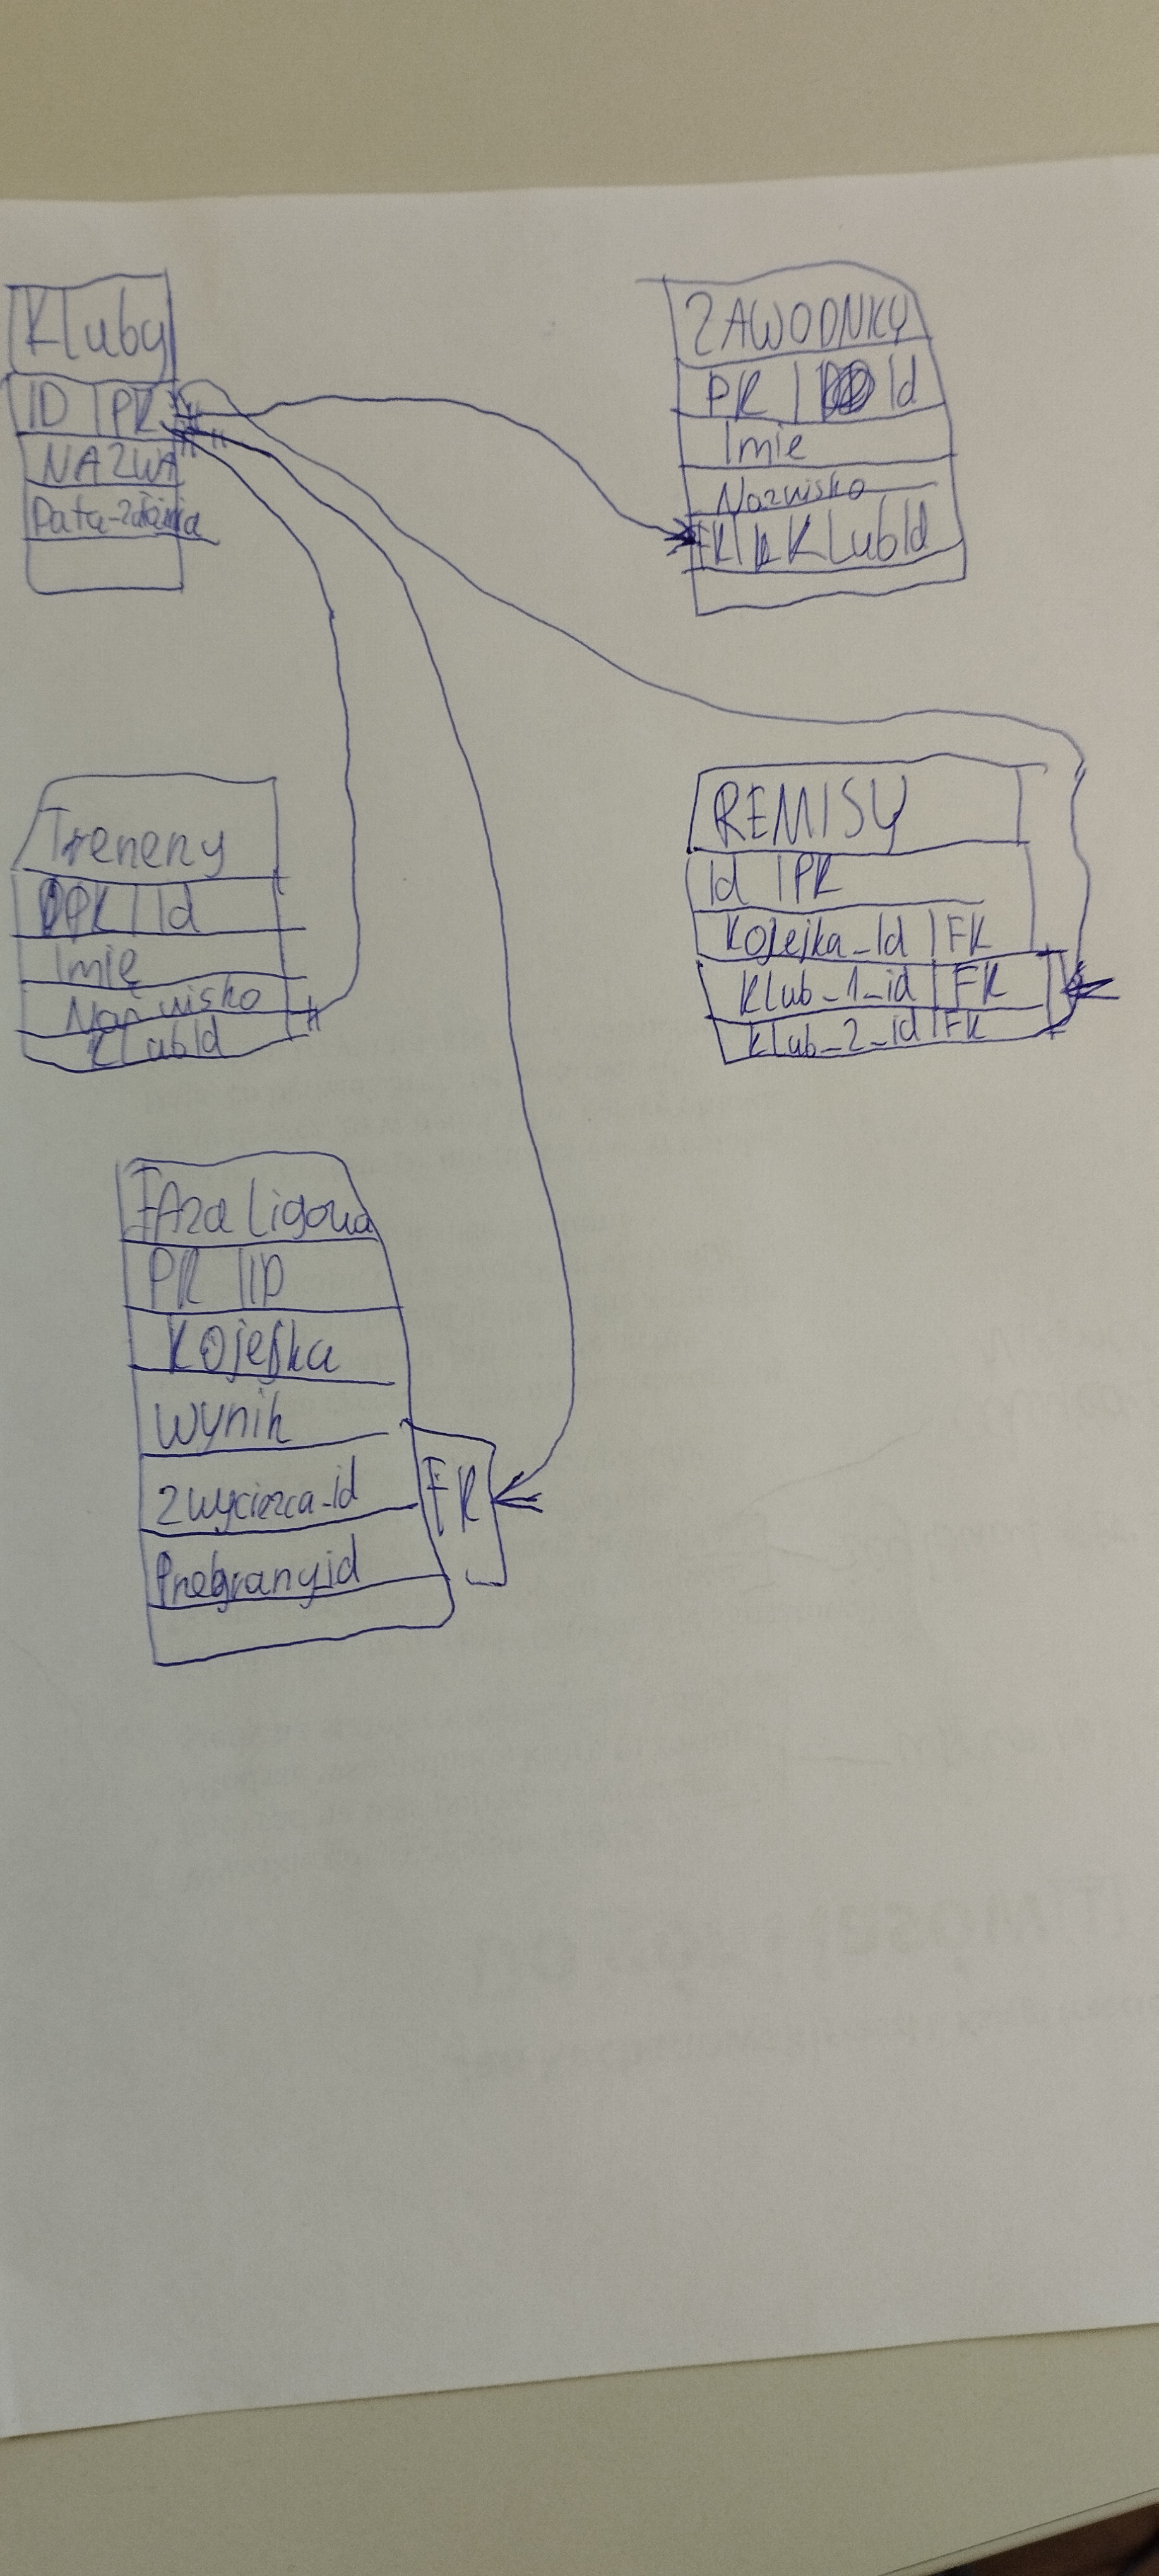 Kluby
ID | PK
NAZWA
ZAWODNKY
PK | Id
Imie
Nazwisko
FK | KlubId
Trenery
PK | Id
Imię
Nazwisko
KlubId
REMISY
Id | PK
Kolejka_Id | FK
Klub_1_id | FK
Klub_2_id | FK
FAza Ligowa
PK | ID
Kolejka
Wynik
Zwyciezca_id
FK
Prebrany_id